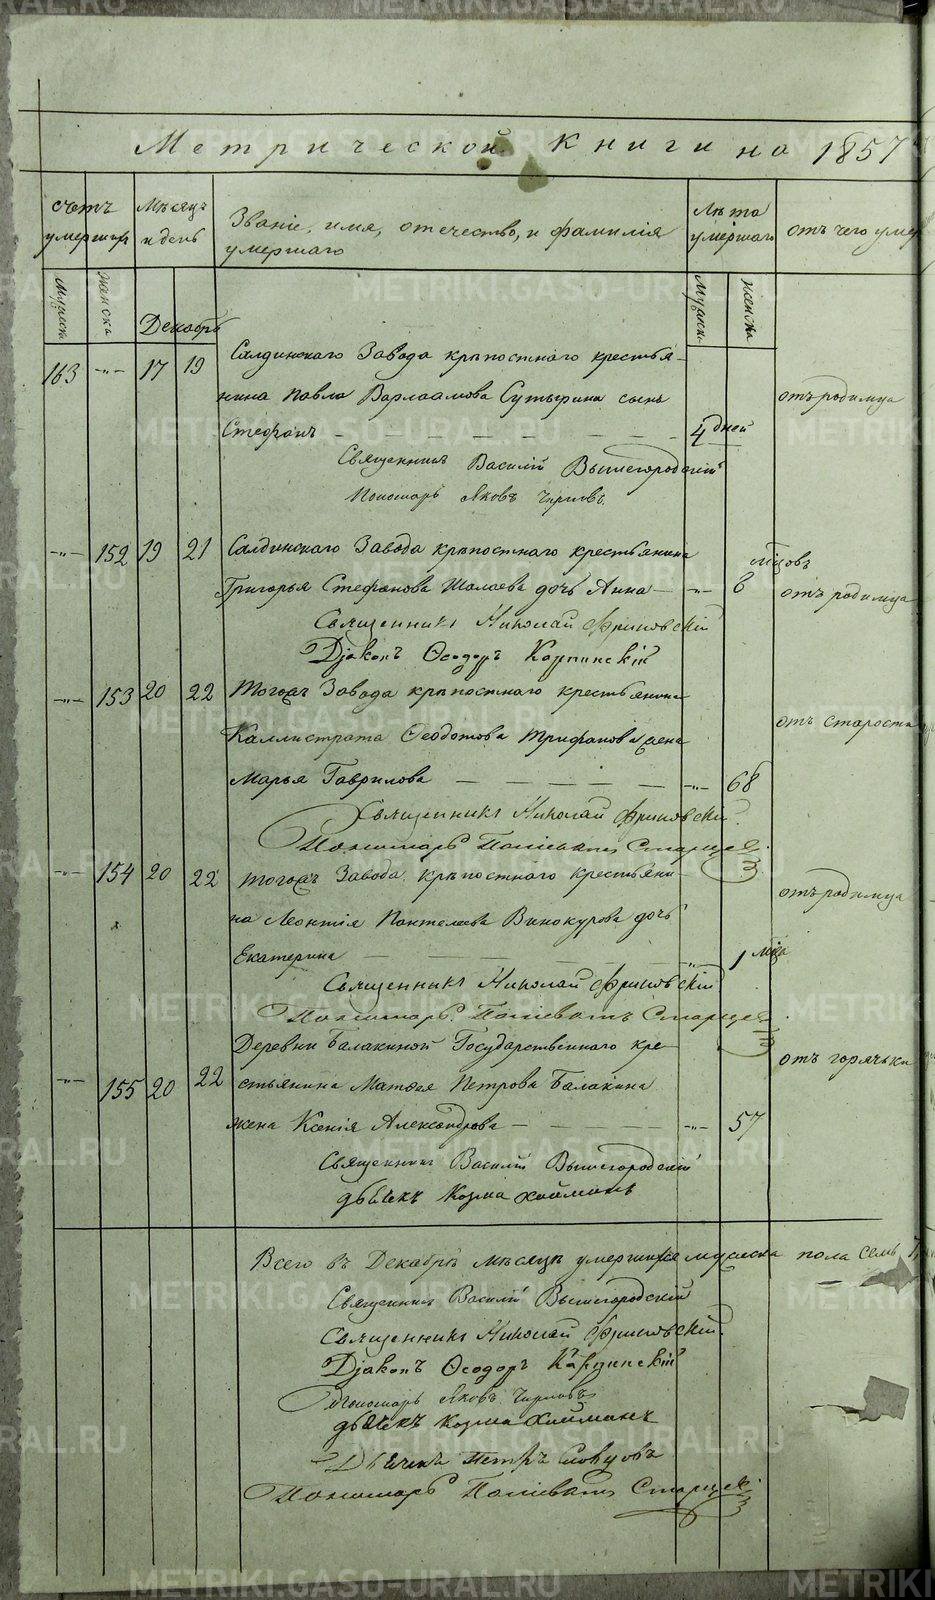 Метрической книги на 1857
Счетъ умершихъ
Мѣсяцъ и день
Званіе, имя, отечество, и фамилія умершаго
Лѣта умершаго
отъ чего умер
Мужеска
Женска
Декабрь
Мужеска
Женска
163 -"- 17 19 Салдинскаго Завода крѣпостнаго крестья-
нина Павла Варлаамова Сутырина сынъ отъ родимца
Стефанъ 4 дней
Священникъ Василій Вышегородскій
Пономарь Яковъ
-"- 152 19 21 Салдинскаго Завода крѣпостнаго крестьянина
Григорья Стефанова Шалаева дочь Анна -"- 6 мѣсяцовъ отъ родимца
Священникъ Николай
Діаконъ Ѳеодоръ Карпинскій
-"- 153 20 22 Тогожъ Завода крѣпостнаго крестьянина
Каллистрата Ѳеодотова Трифанова жена отъ старости
Марья Гаврилова -"- 68
Священникъ Николай
Пономарь Старцевъ
-"- 154 20 22 Тогожъ Завода крѣпостнаго крестьяни-
на Леонтія Пантелеева Винокурова дочь отъ родимца
Екатерина -"- 1 мѣсяца
Священникъ Николай
Пономарь Старцевъ
Деревни Балакиной Государственнаго кре-
-"- 155 20 22 стьянина Матѳея Петрова Балакина отъ горячьки
жена Ксенія Александрова -"- 57
Священникъ Василій Вышегородскій
дьячекъ Козма
Всего въ Декабрѣ мѣсяцѣ умершихъ мужеска пола семь
Священникъ Василій Вышегородскій
Священникъ Николай
Діаконъ Ѳеодоръ Карпинскій
Пономарь Яковъ
дьячекъ Козма
Дьячекъ Петръ Словцовъ
Пономарь Старцевъ
METRIKI.GASO-URAL.RU